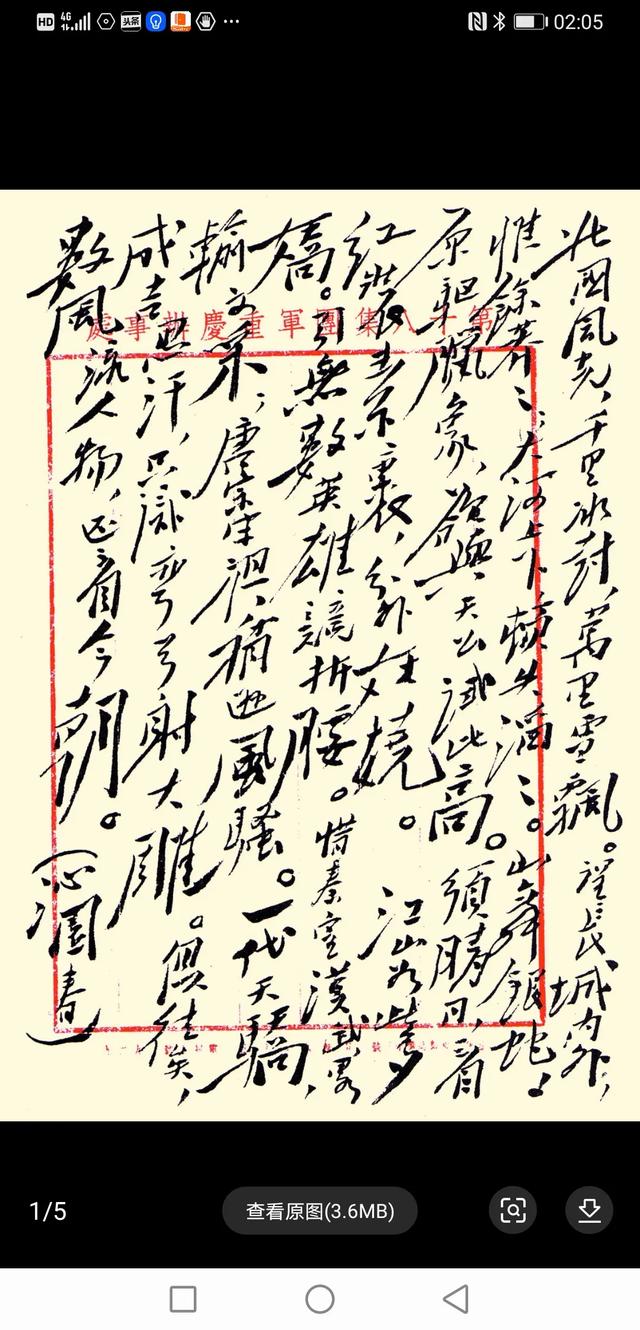 HD 4G 头条 02:05
第十八集團軍重慶辦事處
北國風光,千里冰封,萬里雪飄。望長城內外,
惟餘莽々;大河上下,頓失滔々。山舞銀蛇,
原驅臘象,欲與天公試比高。須晴日,看
紅裝素裹,分外妖嬈。江山如此多
嬌。引無數英雄競折腰。惜秦皇漢武,略
輸文采;唐宗宋祖,稍遜風騷。一代天驕,
成吉思汗,只識彎弓射大雕。俱往矣,
數風流人物,還看今朝。(沁園春)
1/5
查看原图(3.6MB)